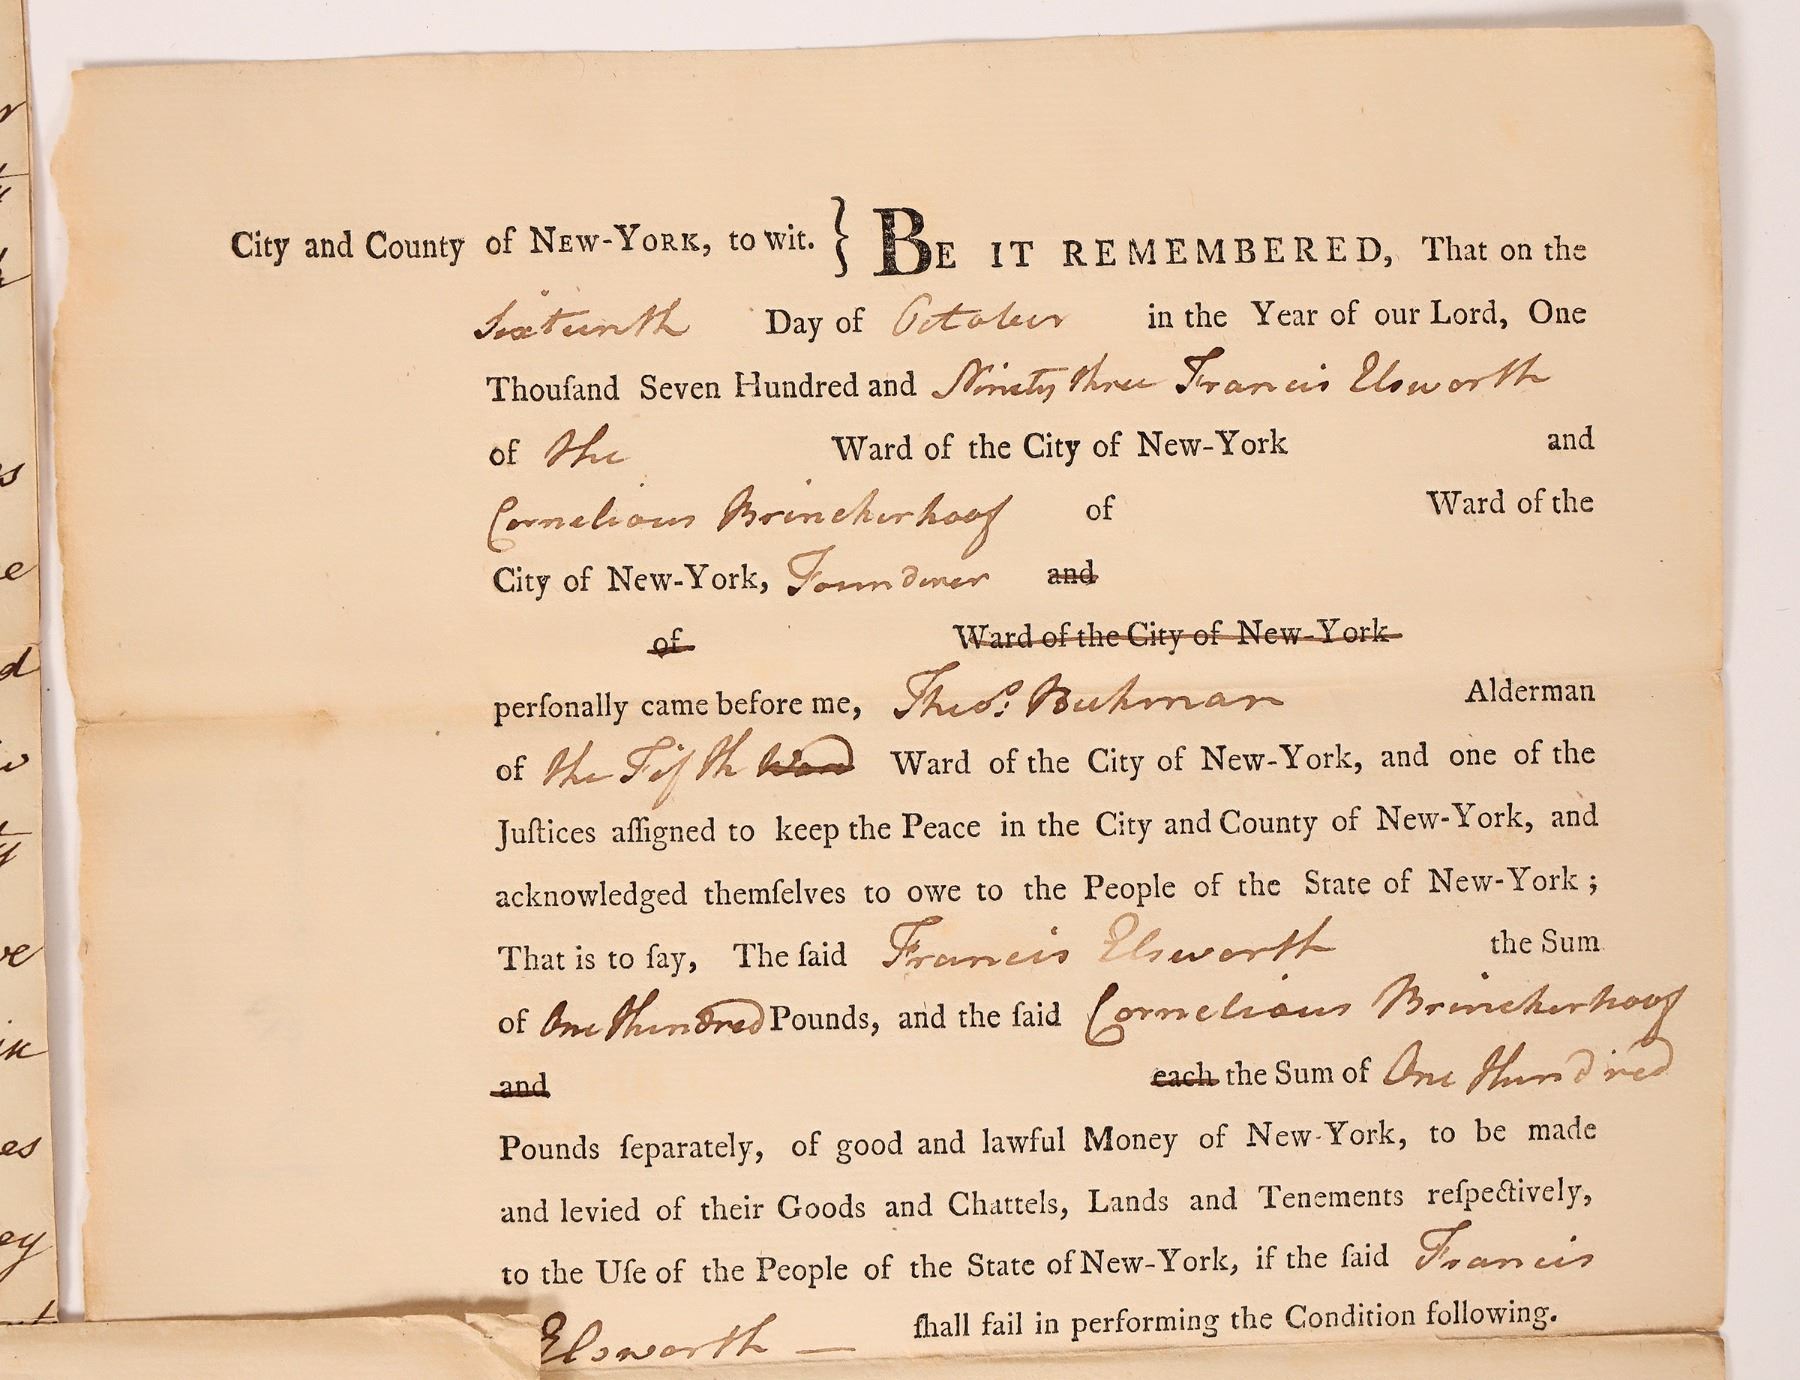 City and County of NEW-YORK, to wit. } BE IT REMEMBERED, That on the
Sixteenth Day of October in the Year of our Lord, One
Thouſand Seven Hundred and Ninety three Francis Elsworth
of the Ward of the City of New-York and
Cornelious Brinckerhoof of Ward of the
City of New-York, Founderer and
of Ward of the City of New-York
perſonally came before me, Theos. Beekman Alderman
of the Fifth Ward Ward of the City of New-York, and one of the
Juſtices aſſigned to keep the Peace in the City and County of New-York, and
acknowledged themſelves to owe to the People of the State of New-York ;
That is to ſay, The ſaid Francis Elsworth the Sum
of One Hundred Pounds, and the ſaid Cornelious Brinckerhoof
and each the Sum of One Hundred
Pounds ſeparately, of good and lawful Money of New-York, to be made
and levied of their Goods and Chattels, Lands and Tenements reſpectively,
to the Uſe of the People of the State of New-York, if the ſaid Francis
Elsworth — ſhall fail in performing the Condition following.